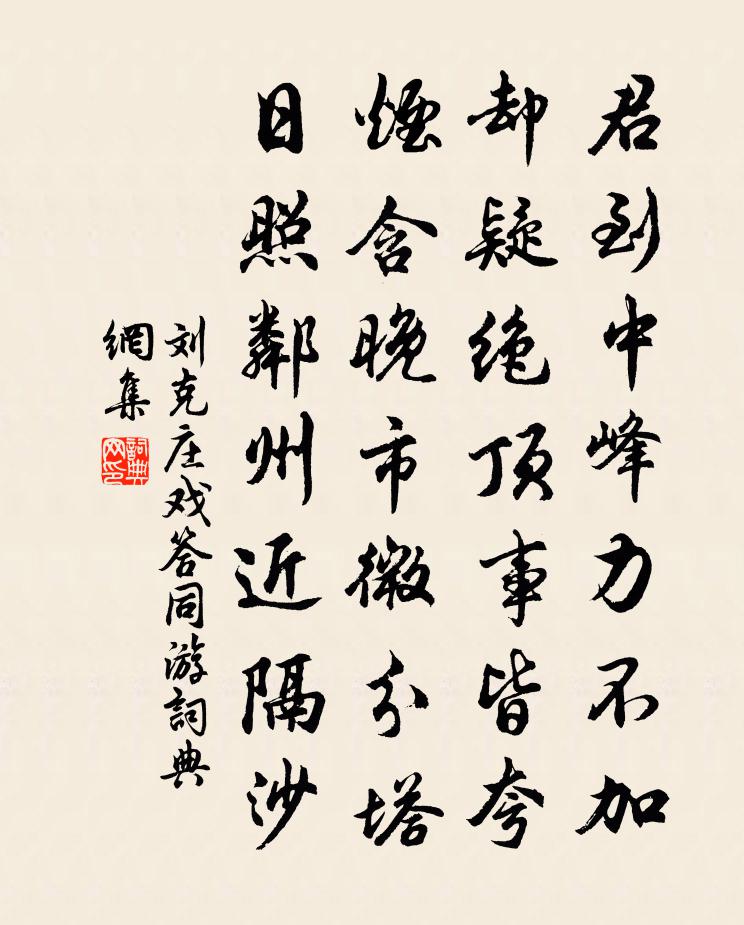 君到中峰力不加
却疑绝顶事皆夸
煙含晚市微分塔
日照鄰州近隔沙
刘克庄戏答同游詞典
網集
詞典
网印